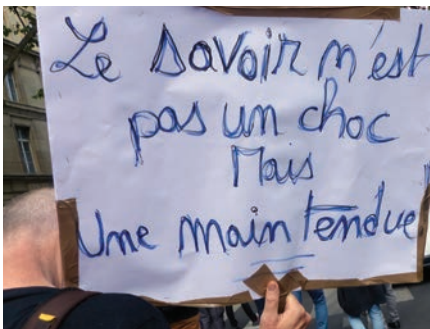 Le savoir n'est
pas un choc
Mais
Une main tendue